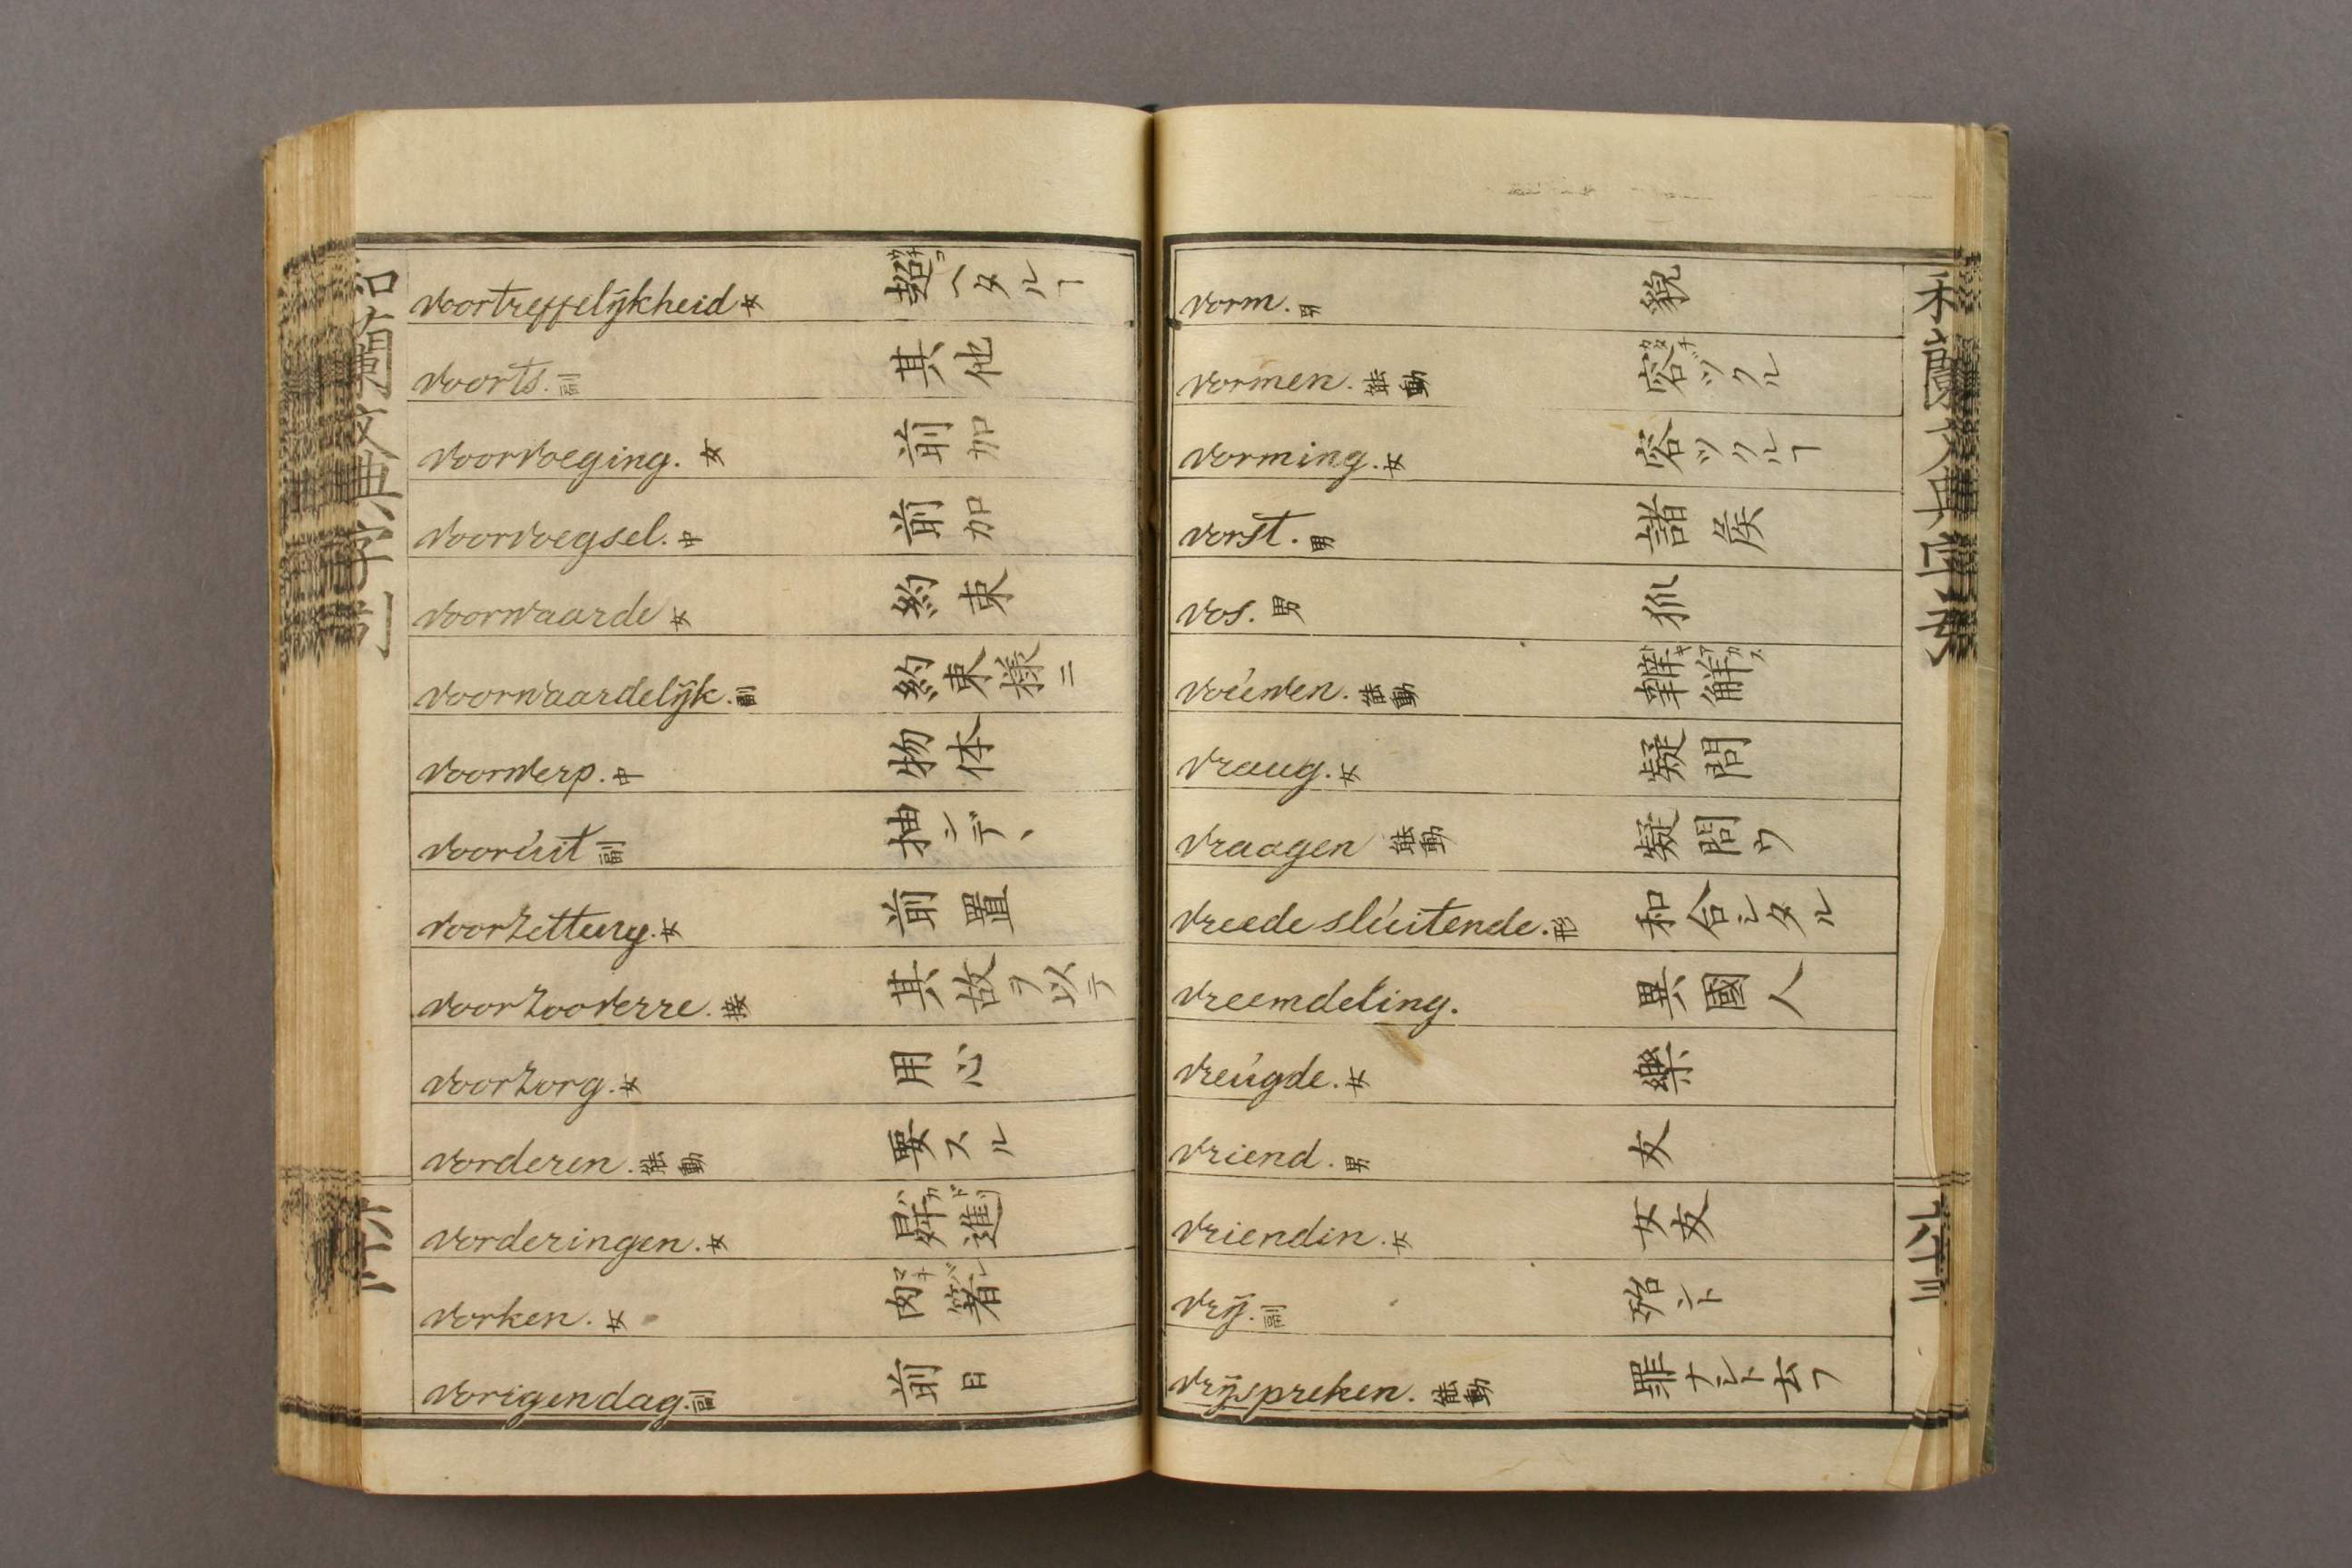 voortreffelijkheid 女 超ヘタルヿ
voorts. 副 其他
voorvoeging. 女 前加
voorvoegsel. 中 前加
voorwaarde 女 約束
voorwaardelijk. 副 約束様ニ
voorwerp. 中 物体
voorúit 副 抽シデヽ
voorzetting. 女 前置
voorzooverre. 接 其故ヲ以テ
voorzorg. 女 用心
vorderen. 能動 要スル
vorderingen. 女 昇進
vorken. 女 肉箸
vorigendag. 副 前日
vorm. 男 貌
vormen. 能動 容ヅクル
vorming. 女 容ヅクルヿ
vorst. 男 諸侯
vos. 男 狐
voúwen. 能動 解
vraag. 女 疑問
vraagen 能動 疑問ウ
vreede slúitende. 形 和合シタル
vreemdeling. 異國人
vreúgde. 女 樂
vriend. 男 友
vriendin. 女 女友
vrij. 副 殆ント
vrijspreken. 能動 罪ナシト云フ